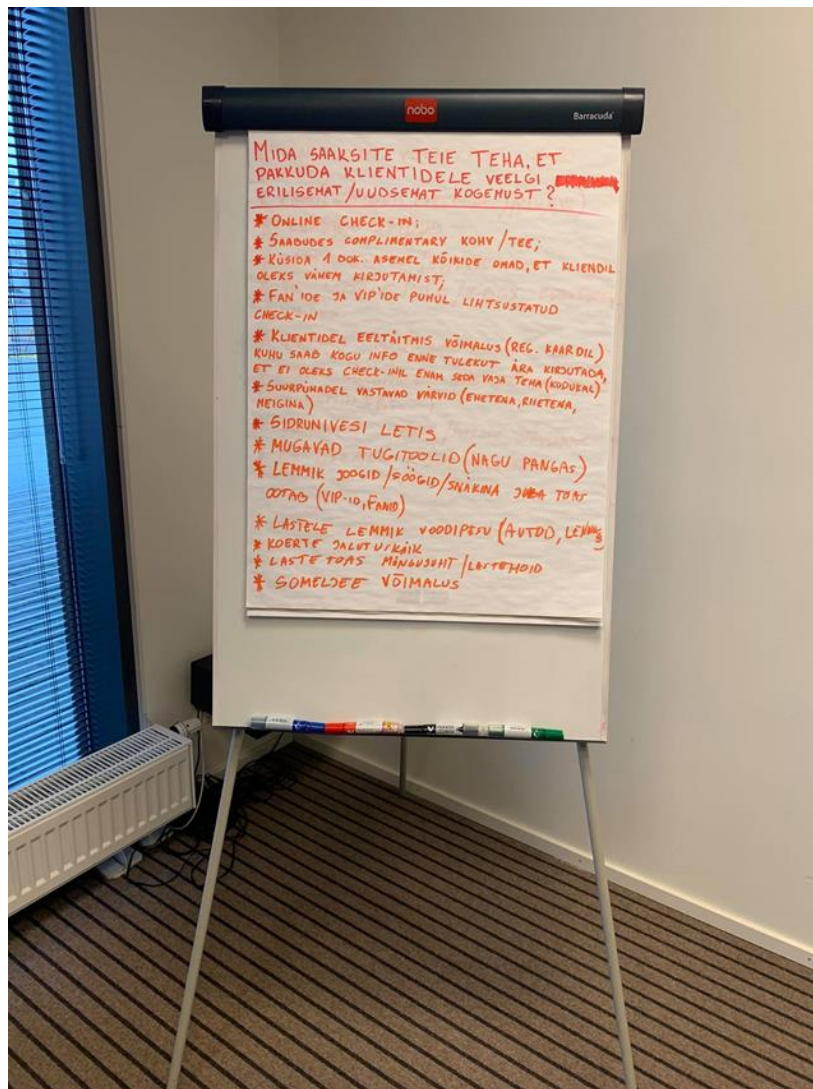 nobo
Barracuda
MIDA SAAKSITE TEIE TEHA, ET
PAKKUDA KLIENTIDELE VEELGI
ERILISEMAT/UUDSEMAT KOGEMUST?
* ONLINE CHECK-IN;
* SAABUDES COMPLIMENTARY KOHV/TEE;
* KÜSIDA 1 DOK. ASEMEL KÕIKIDE OMAD, ET KLIENDIL
OLEKS VÄHEM KIRJUTAMIST;
* FAN'IDE JA VIP'IDE PUHUL LIHTSUSTATUD
CHECK-IN
* KLIENTIDEL EELTÄITMIS VÕIMALUS (REG. KAARDIL)
KUHU SAAB KOGU INFO ENNE TULEKUT ÄRA KIRJUTADA,
ET EI OLEKS CHECK-INIL ENAM SEDA VAJA TEHA (KODUKAL)
* SUURPÜHADEL VASTAVAD VÄRVID (EHETENA, RIIETENA,
MEIGINA)
* SIDRUNIVESI LETIS
* MUGAVAD TUGITOOLID (NAGU PANGAS)
* LEMMIK JOOGID/SÖÖGID/SNÄKINA JUBA TOAS
OOTAB (VIP-ID, FANID)
* LASTELE LEMMIK VOODIPESU (AUTOD,
* KOERTE JALUTUSKÄIK
* LASTE TOAS MÄNGUJUHT/LASTEHOID
* SOMELJEE VÕIMALUS